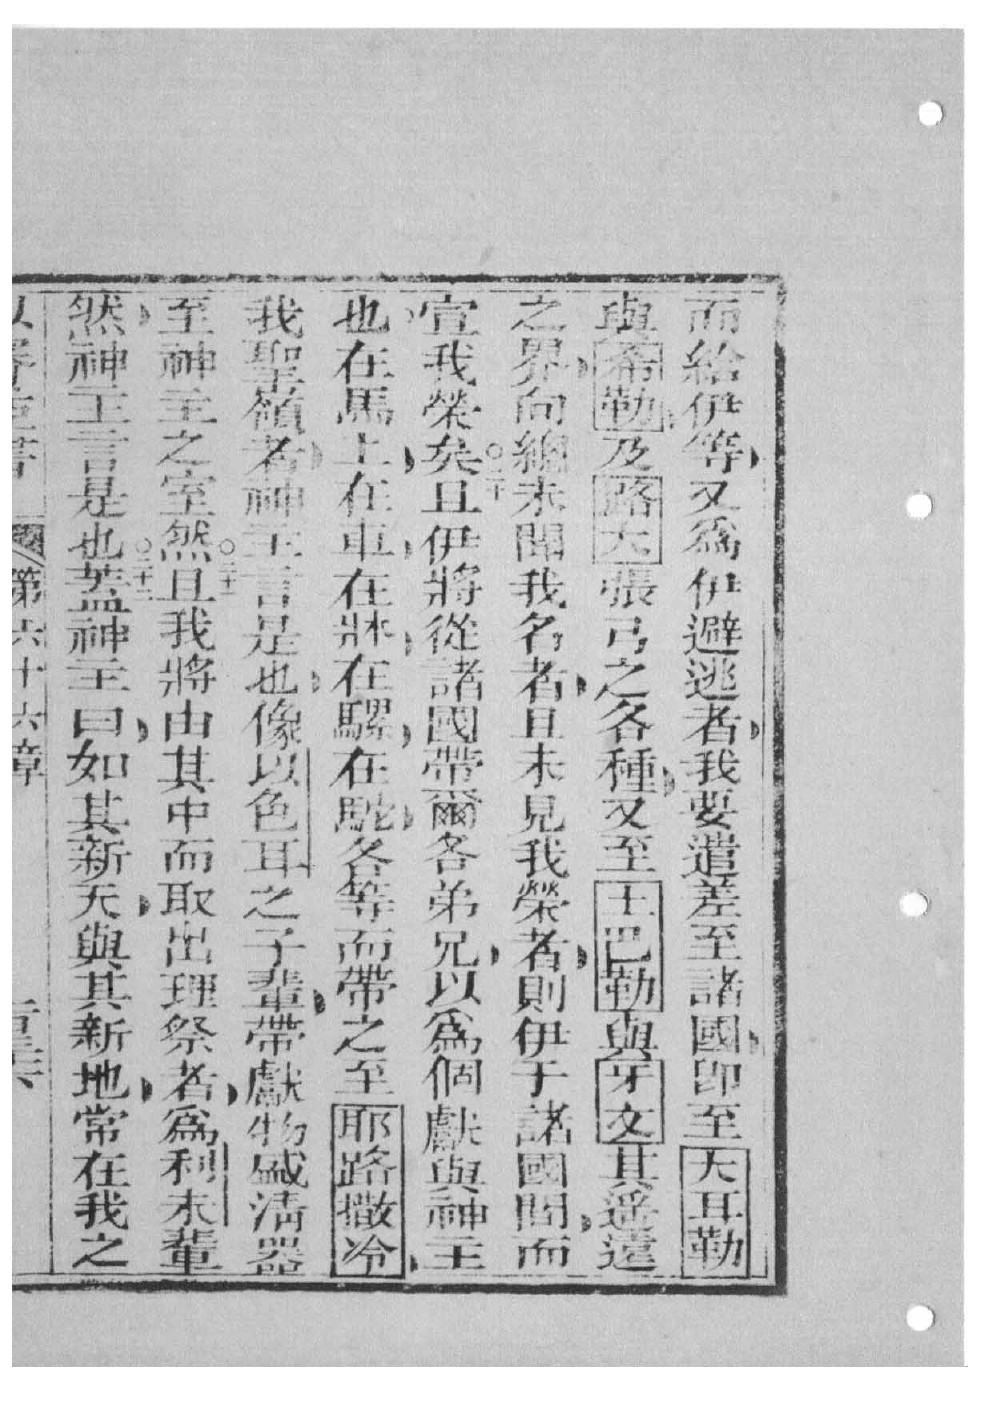 而給伊等又爲伊避逃者我要遣差至諸國卽至大耳勒
與希勒及路大張弓之各種又至土巴勒與牙文其遥遣
之界向總未聞我名者且未見我榮者則伊于諸國間而
宣我榮矣○二十且伊將從諸國帶爾各弟兄以爲個獻與神主
也在馬上在車在牀在騾在駝各等而帶之至耶路撒冷
我聖嶺者神主言是也像以色耳之子輩帶獻物盛淸器
至神主之室然○二十一且我將由其中而取出理祭者爲利未輩
然神主言是也○二十二蓋神主曰如其新天與其新地常在我之
第六十六章